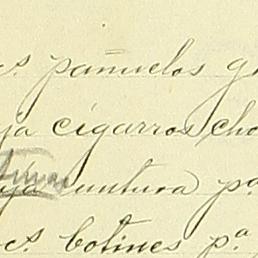 cs. pañuelos g
ja cigarros cho
ja untura pa.
cs. botines pa.